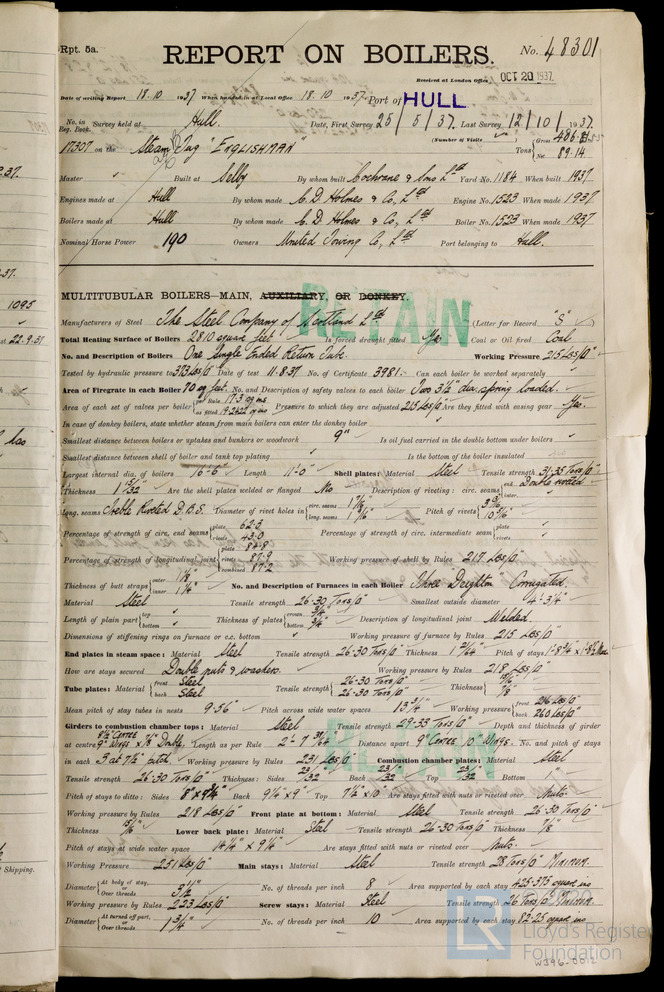 Rpt. 5a.
REPORT ON BOILERS.
No. 48301
Received at London Office OCT 20 1937
Date of writing Report 18.10 1937 When handed in at Local Office 18.10 1937 Port of HULL
No. in Reg. Book. Survey held at Hull Date, First Survey 25/5/37. Last Survey 12/10/1937.
17307 on the Steam Tug "ENGLISHMAN" (Number of Visits Tons Gross 486. Net 89.14
Master Built at Selby By whom built Cochrane & Sons Ltd Yard No. 1184 When built 1937
Engines made at Hull By whom made C. D. Holmes & Co, Ltd Engine No. 1523 When made 1937
Boilers made at Hull By whom made C. D. Holmes & Co, Ltd Boiler No. 1523 When made 1937
Nominal Horse Power 190 Owners United Towing Co, Ltd Port belonging to Hull.
MULTITUBULAR BOILERS—MAIN, AUXILIARY, OR DONKEY.
RETAIN
Manufacturers of Steel The Steel Company of Scotland Ltd (Letter for Record "S")
Total Heating Surface of Boilers 2810 square feet Is forced draught fitted Yes Coal or Oil fired Coal
No. and Description of Boilers One Single Ended Return Tube Working Pressure 215 Lbs/□"
Tested by hydraulic pressure to 373 Lbs/□" Date of test 11.8.37 No. of Certificate 3981. Can each boiler be worked separately
Area of Firegrate in each Boiler 70 sq feet No. and Description of safety valves to each boiler Two 3½" dia, spring loaded.
Area of each set of valves per boiler per Rule 17.3 sq ins as fitted 19.2422 sq ins Pressure to which they are adjusted 215 Lbs/□" Are they fitted with easing gear Yes.
In case of donkey boilers, state whether steam from main boilers can enter the donkey boiler
Smallest distance between boilers or uptakes and bunkers or woodwork 9" Is oil fuel carried in the double bottom under boilers
Smallest distance between shell of boiler and tank top plating Is the bottom of the boiler insulated
Largest internal dia. of boilers 16'-6" Length 11'-0" Shell plates: Material Steel Tensile strength 31-35 Tons/□"
Thickness 1 15/32" Are the shell plates welded or flanged No Description of riveting: circ. seams end Double riveted inter.
long. seams Treble Riveted D.B.S. Diameter of rivet holes in circ. seams 1 7/16" long. seams 1 7/16" Pitch of rivets
Percentage of strength of circ. end seams plate 62.3 rivets 43.0 Percentage of strength of circ. intermediate seam plate rivets
Percentage of strength of longitudinal joint plate rivets 87.9 combined 87.2 Working pressure of shell by Rules 217 Lbs/□"
Thickness of butt straps outer 1 1/8" inner 1 1/4" No. and Description of Furnaces in each Boiler Three Deighton Corrugated.
Material Steel Tensile strength 26-30 Tons/□" Smallest outside diameter 4'-3¼"
Length of plain part top bottom Thickness of plates crown 3/4" bottom 3/4" Description of longitudinal joint Welded.
Dimensions of stiffening rings on furnace or c.c. bottom Working pressure of furnace by Rules 215 Lbs/□"
End plates in steam space: Material Steel Tensile strength 26-30 Tons/□" Thickness Pitch of stays
How are stays secured Double nuts & washers. Working pressure by Rules 218 Lbs/□"
Tube plates: Material front Steel back Steel Tensile strength 26-30 Tons/□" 26-30 Tons/□" Thickness 15/16" 7/8"
Mean pitch of stay tubes in nests 9.56" Pitch across wide water spaces 13¼" Working pressure front back 260 Lbs/□"
Girders to combustion chamber tops: Material Steel Tensile strength 29-33 Tons/□" Depth and thickness of girder
at centre 8½" Centre 9" Wings x 7/8" Double Length as per Rule 2'-7 31/64" Distance apart 9" Centre 10" Wings. No. and pitch of stays
in each 3 at 7½" pitch Working pressure by Rules 231 Lbs/□" Combustion chamber plates: Material Steel
Tensile strength 26-30 Tons/□" Thickness: Sides 23/32" Back Top 23/32" Bottom
Pitch of stays to ditto: Sides Back 9¼"x9" Top 7½"x10" Are stays fitted with nuts or riveted over Nuts
Working pressure by Rules 218 Lbs/□" Front plate at bottom: Material Steel Tensile strength 26-30 Tons/□"
Thickness 15/16" Lower back plate: Material Steel Tensile strength 26-30 Tons/□" Thickness 7/8"
Pitch of stays at wide water space 14¼" x 9¼" Are stays fitted with nuts or riveted over Nuts.
Working Pressure 251 Lbs/□" Main stays: Material Steel Tensile strength 28 Tons/□" MINIMUM.
Diameter At body of stay, or Over threads 3½" No. of threads per inch 8 Area supported by each stay 425.375 square ins
Working pressure by Rules 223 Lbs/□" Screw stays: Material Steel Tensile strength 26 Tons/□" Minimum.
Diameter At turned off part, or Over threads 1¾" No. of threads per inch 10 Area supported by each stay 82.25 square ins
Lloyd's Register
Foundation
W396-0012